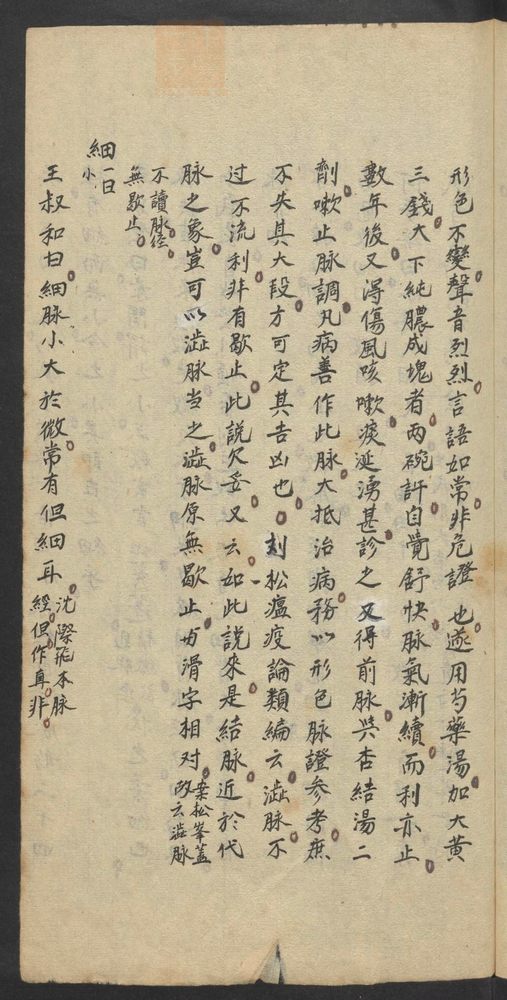 形色不變聲音烈烈言語如常非危證也遂用芍藥湯加大黃
三錢大下純膿成塊者兩碗許自覺舒快脉氣漸續而利亦止
數年後又得傷風咳嗽痰涎湧甚診之又得前脉與杏結湯二
劑嗽止脉調凡病善作此脉大抵治病務以形色脉證參考庶
不失其大段方可定其吉凶也刘松瘟疫論類編云澁脉不
过不流利非有歇止此說欠妥又云如此說來是結脉近於代
脉之象豈可以澁脉当之澁脉原無歇止与滑字相对案松峯蓋
故云澁脉
不讀脉經
無歇止
細一曰
小
王叔和曰細脉小大於微常有但細耳沈際飛本脉
經但作直非